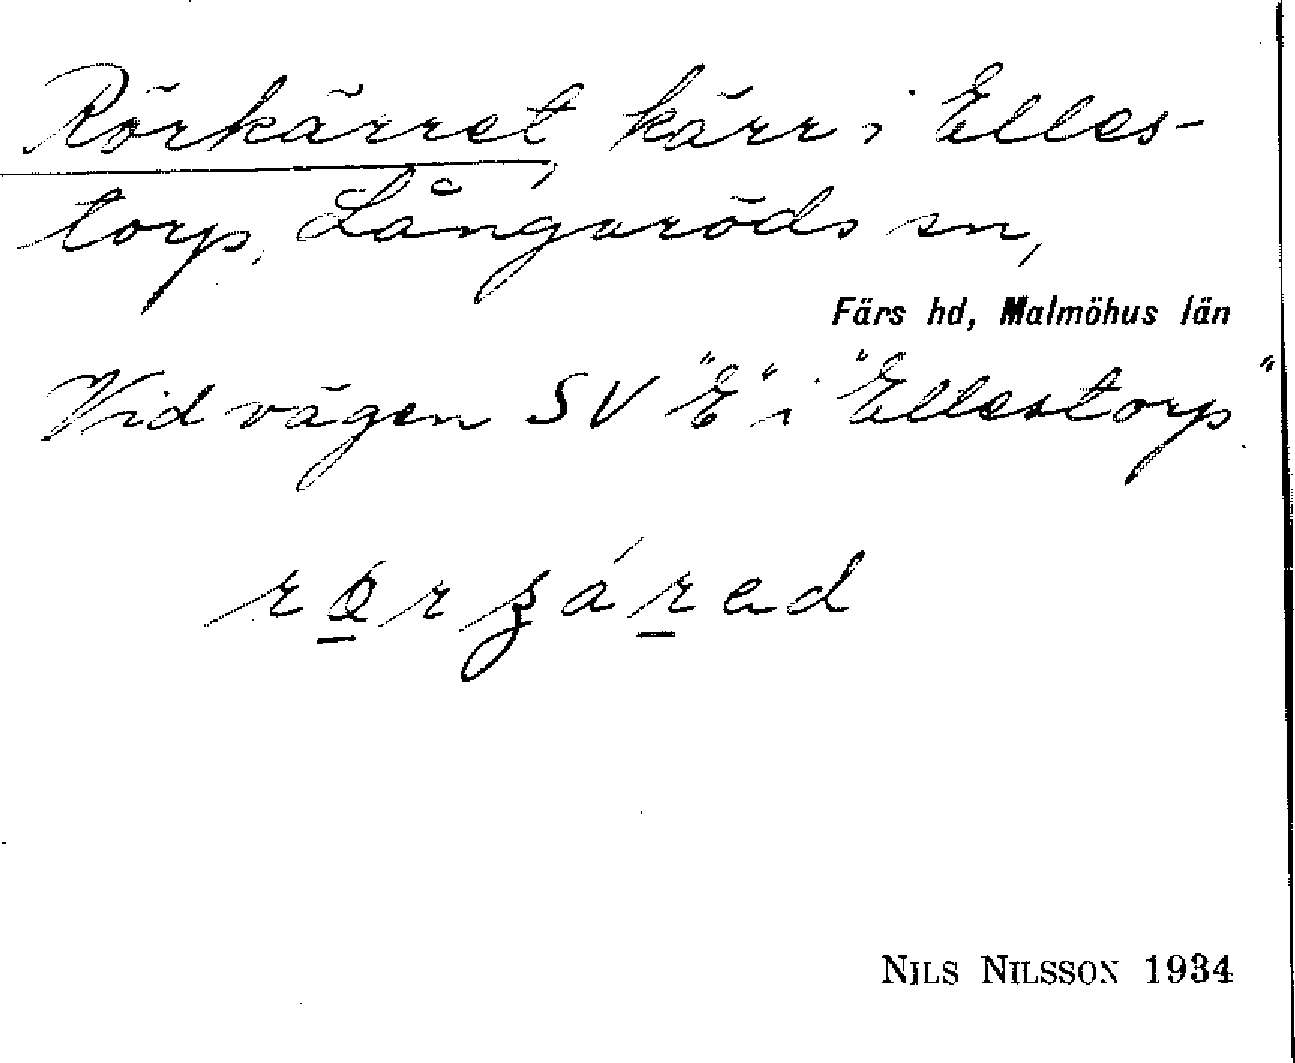 Rörkärret, kärr i Elles-
torp, Långaröds sn,
Färs hd, Malmöhus län
Vid vägen SV "E" i "Ellestorp"
NILS NILSSON 1934